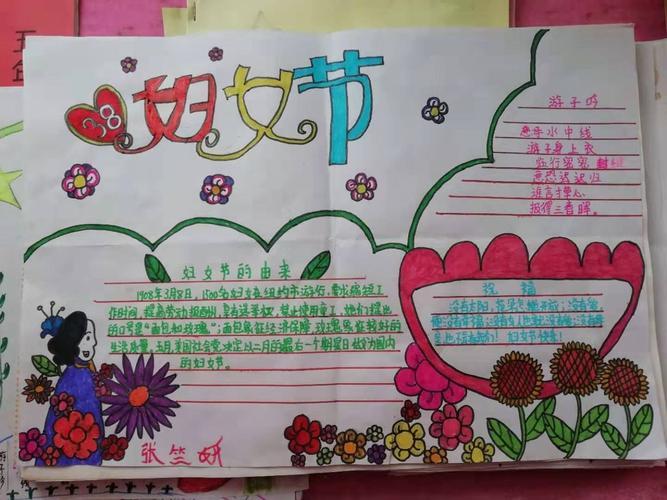 五年
38 妇女节
游子吟
慈母手中线
游子身上衣
临行密密缝
意恐迟迟归
谁言寸草心
报得三春晖。
妇女节的由来
1908年3月8日,1500名妇女在纽约市游行,要求缩短工
作时间,提高劳动报酬,享有选举权,禁止使用童工。她们提出
的口号是“面包和玫瑰”,面包象征经济保障,玫瑰象征较好的
生活质量。五月,美国社会党决定以二月的最后一个期星日做为国内
的妇女节。
祝福
没有太阳,花朵不能开放;没有爱
便没有幸福;没有女人也就没有爱;没有母
亲 妇女节快乐!
张竺妍